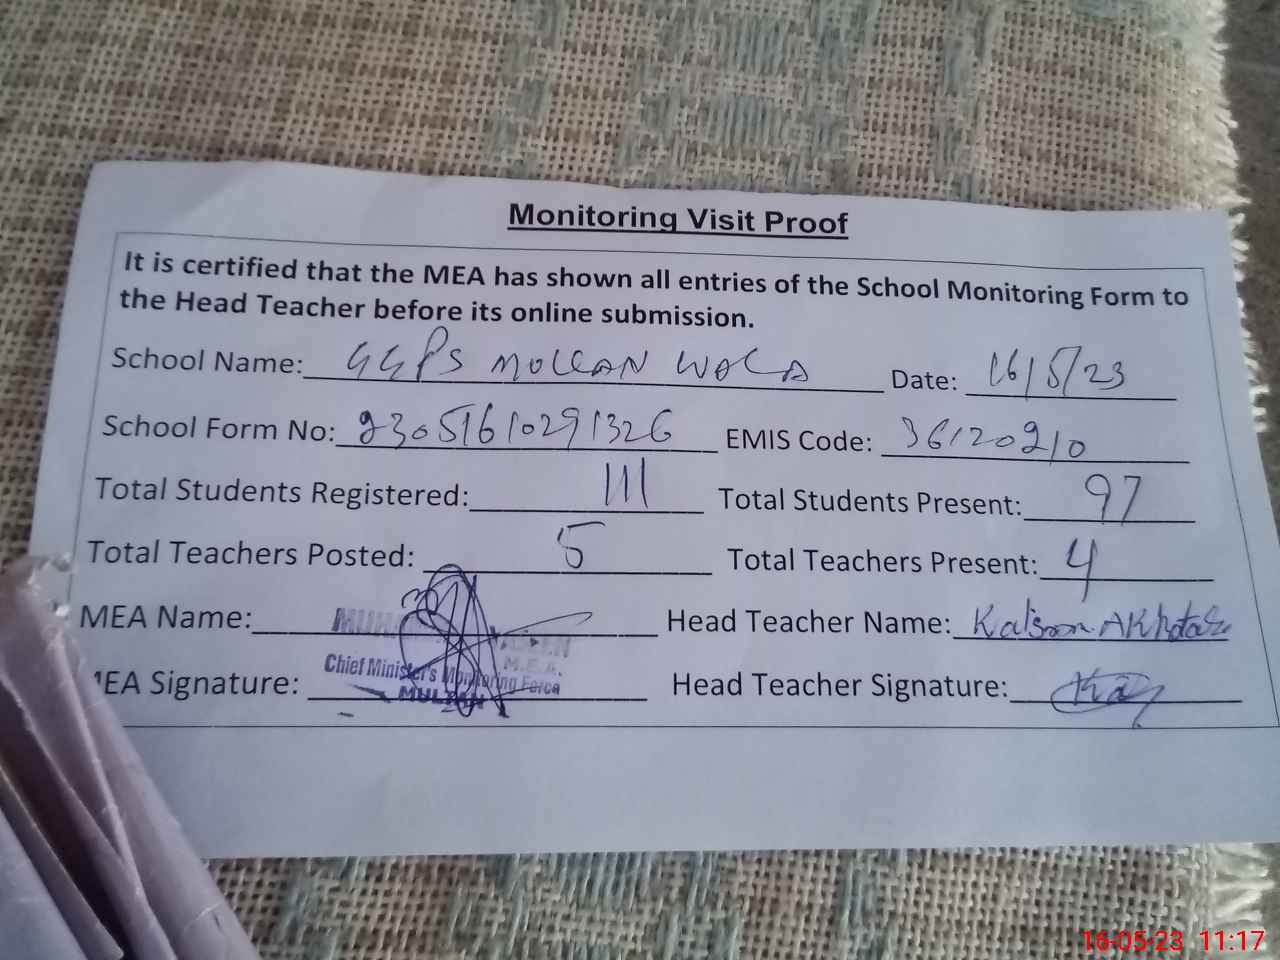 Monitoring Visit Proof
It is certified that the MEA has shown all entries of the School Monitoring Form to
the Head Teacher before its online submission.
School Name: GGPS MOLLAN WALA Date: 16/5/23
School Form No: 23051610291326 EMIS Code: 36120210
Total Students Registered: 111 Total Students Present: 97
Total Teachers Posted: 5 Total Teachers Present: 4
MEA Name: Head Teacher Name: Kalsoom AKhtar
M.E.A.
Chief Minister's Monitoring Force
MULTAN
MEA Signature: Head Teacher Signature:
16-05-23 11:17